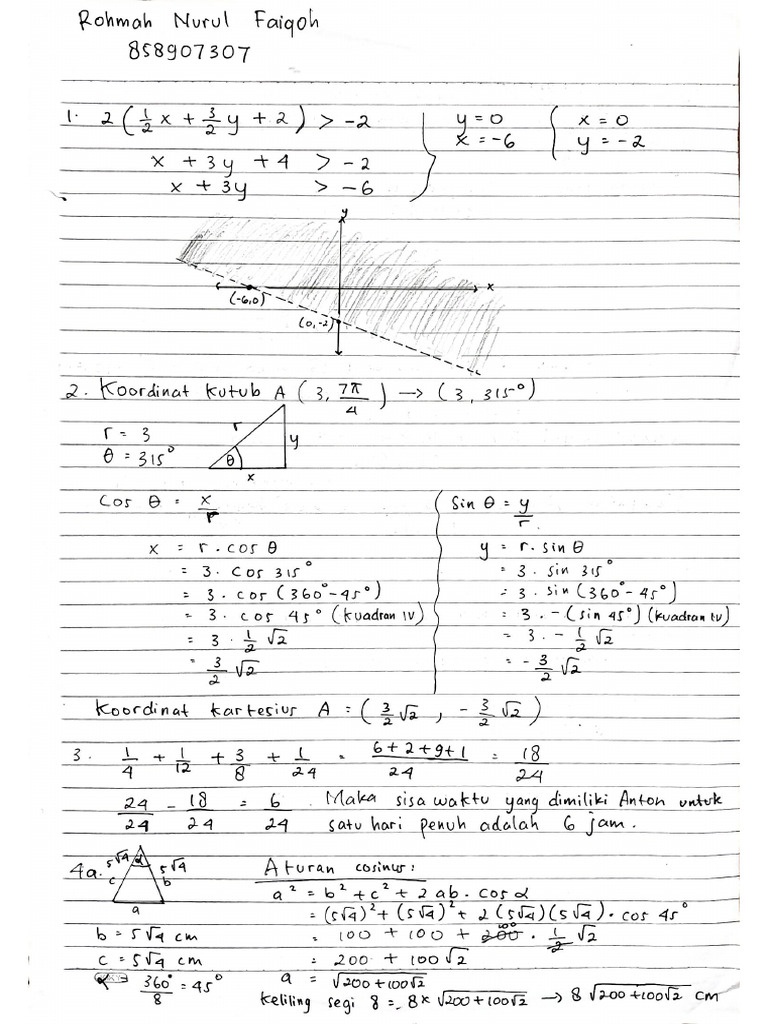 Rohmah Nurul Faiqoh
858907307
1. 2 (1/2 x + 3/2 y + 2) > -2
x + 3y + 4 > -2
x + 3y > -6
y = 0
x = -6
x = 0
y = -2
y
x
(-6,0)
(0,-2)
2. Koordinat kutub A (3, 7π/4) → (3, 315°)
r = 3
θ = 315°
r
y
θ
x
Cos θ = x/r
x = r . cos θ
= 3 . cos 315°
= 3 . cos (360° - 45°)
= 3 . cos 45° (kuadran IV)
= 3 . 1/2 √2
= 3/2 √2
Sin θ = y/r
y = r . sin θ
= 3 . sin 315°
= 3 . sin (360° - 45°)
= 3 . - (sin 45°) (kuadran IV)
= 3 . - 1/2 √2
= - 3/2 √2
Koordinat kartesius A = (3/2 √2 , - 3/2 √2)
3. 1/4 + 1/12 + 3/8 + 1/24 = 6+2+9+1/24 = 18/24
24/24 - 18/24 = 6/24 . Maka sisa waktu yang dimiliki Anton untuk
satu hari penuh adalah 6 jam.
4a.
5√4
α
5√4
c
b
a
b = 5√4 cm
c = 5√4 cm
360°/8 = 45°
Aturan cosinus:
a² = b² + c² + 2 ab . cos α
= (5√4)² + (5√4)² + 2 (5√4)(5√4) . cos 45°
= 100 + 100 + 200 100 . 1/2 √2
= 200 + 100√2
a = √200+100√2
keliling segi 8 = 8 × √200+100√2 → 8 √200+100√2 cm